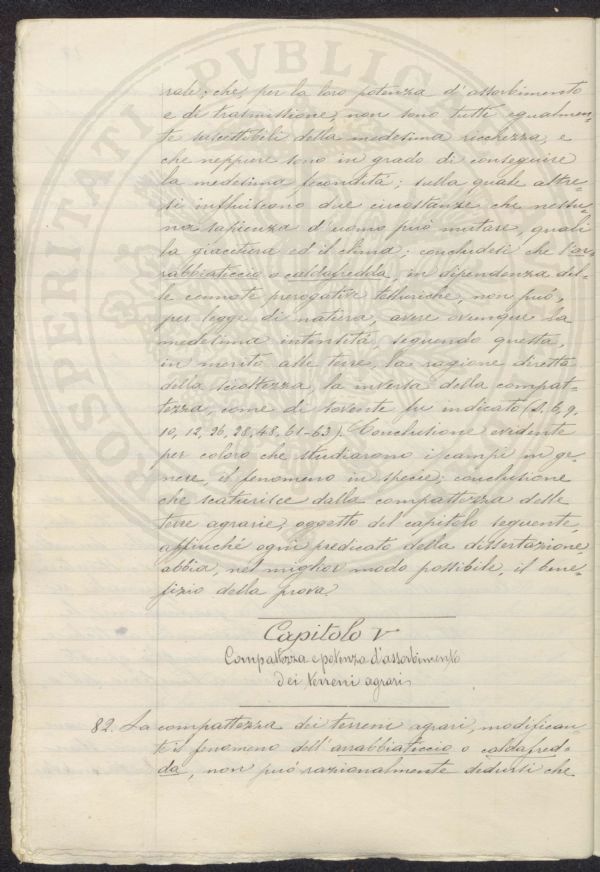 rale; che, per la loro potenza d'assorbimento
e di trasmissione, non sono tutte egualmen=
te suscettibili della medesima ricchezza, e
che neppure sono in grado di conseguire
la medesima fecondità; sulla quale altre=
sì influiscono due circostanze che nessu=
na sapienza d'uomo può mutare, quali
la giacitura ed il clima; concludesi che l'ar=
rabbiaticcio o caldafredda, in dipendenza del=
le connate prerogative telluriche, non può,
per legge di natura, avere ovunque la
medesima intensità, seguendo questa,
in merito alle terre, la ragione diretta
della scioltezza, la inversa della compat=
tezza, come di sovente fu indicato (S. 6, 9,
10, 12, 26, 28, 48, 61-63). Conclusione evidente
per coloro che studiarono i campi in ge=
nere, il fenomeno in specie; conclusione
che scaturisce dalla compattezza delle
terre agrarie, oggetto del capitolo seguente,
affinché ogni predicato della dissertazione
abbia, nel miglior modo possibile, il bene=
fizio della prova.
Capitolo V
Compattezza e potenza d'assorbimento
dei terreni agrari
82. La compattezza dei terreni agrari, modifican=
te il fenomeno dell'arrabbiaticcio o caldafred=
da, non può razionalmente dedursi che
PROSPERITATI PVBLICAE